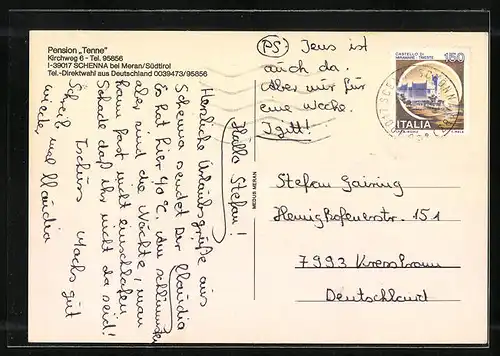 Pension „Tenne"
Kirchweg 6 - Tel. 95856
I-39017 SCHENNA bei Meran/Südtirol
Tel.-Direktwahl aus Deutschland 0039473/95856
Hallo Stefan!
Herzliche Urlaubsgrüße aus
Schenna sendet Dir Claudia
Es hat hier 40°C. Am schlimmsten
aber sind die Nächte, man
kann fast nicht einschlafen.
Schade daß ihr nicht da seid!
Tschüss machs gut
Schreib mal Claudia
wieder
MEDUS MERAN
PS Jens ist
auch da.
Aber nur für
eine Woche.
Igitt!
CASTELLO DI
MIRAMARE - TRIESTE
150
ITALIA
Stefan Gairing
Hemigkofenerstr. 151
7993 Kressbronn
Deutschland